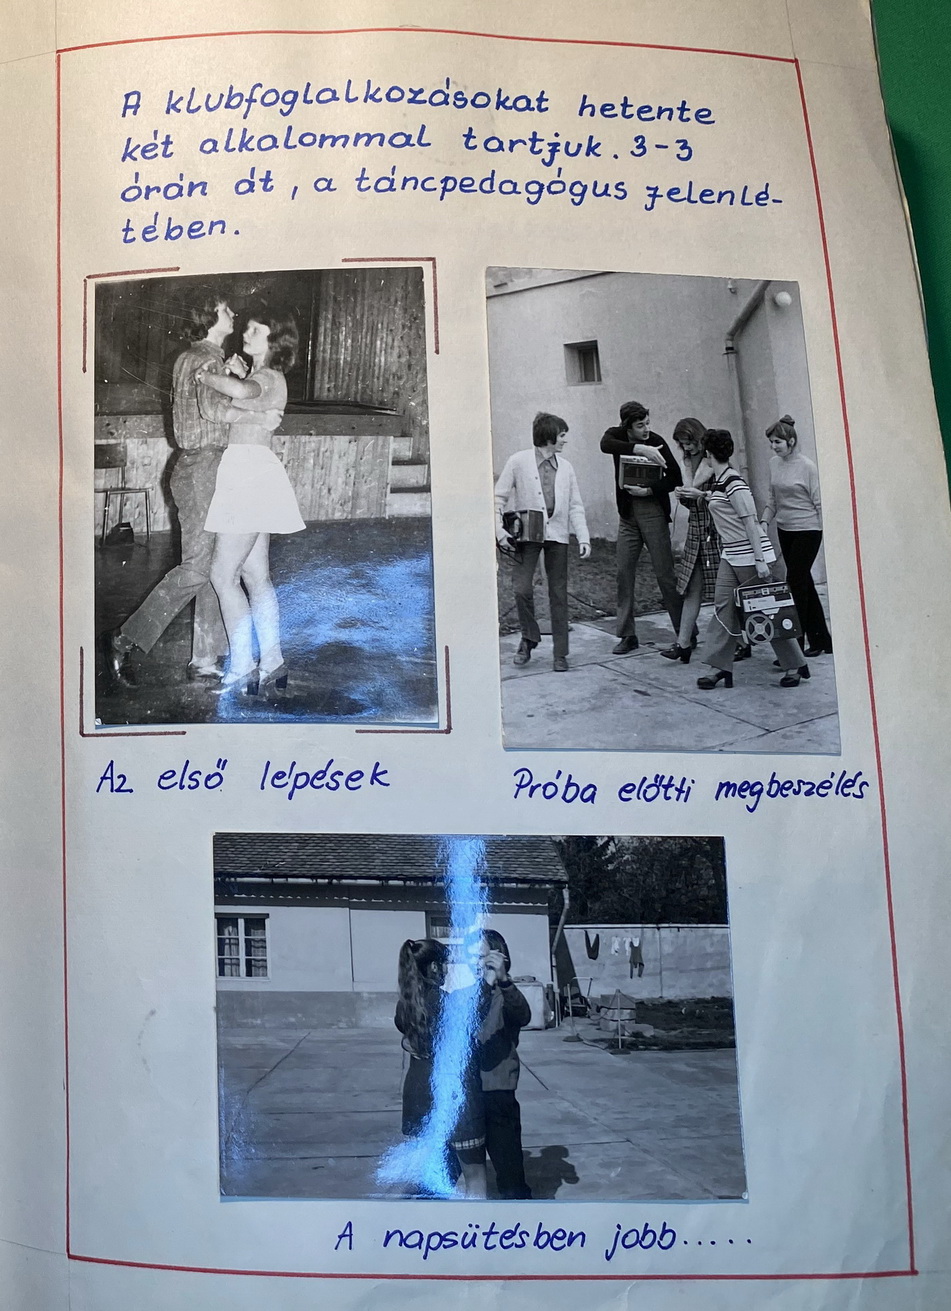 A klubfoglalkozásokat hetente
két alkalommal tartjuk. 3-3
órán át, a táncpedagógus jelenlé-
tében.
Az első lépések
Próba előtti megbeszélés
A napsütésben jobb.....